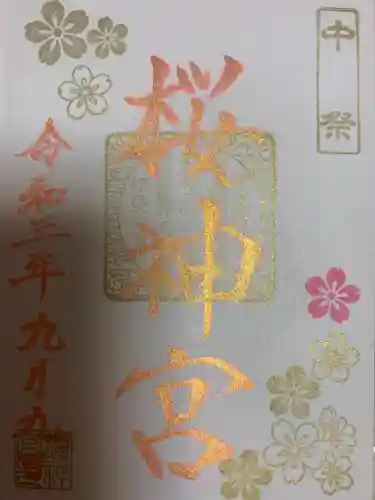 中祭
桜神宮
令和三年九月九